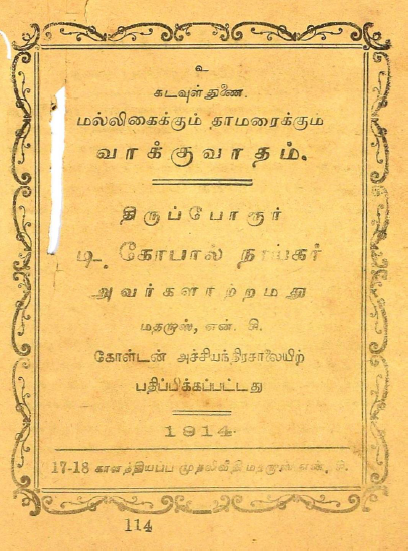 உ
கடவுள் துணை.
மல்லிகைக்கும் தாமரைக்கும்
வாக்குவாதம்.
திருப்போரூர்
டி. கோபால் நாய்கர்
அவர்களாற்றமது
மதராஸ், என். சி.
கோள்டன் அச்சியந்திரசாலையிற்
பதிப்பிக்கப்பட்டது
1914.
17-18 காளத்தியப்ப முதலிவீதி மதராஸ் என். சி.
114